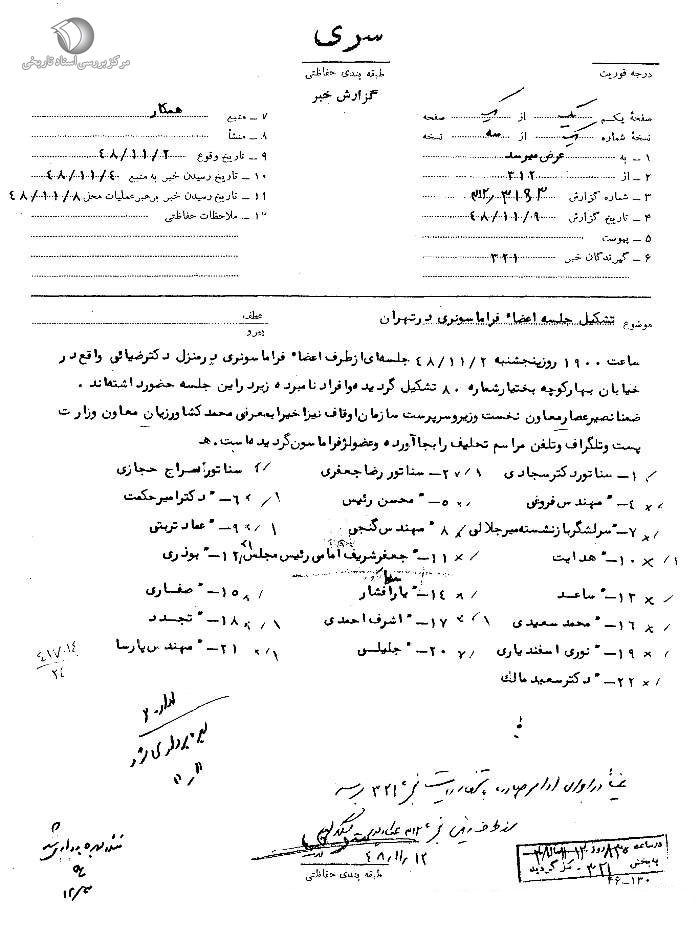 مرکز بررسی اسناد تاریخی
سری
طبقه بندی حفاظتی
درجه فوریت
گزارش خبر
صفحهٔ یکم یک از یک صفحه
نسخهٔ شماره یک از سه نسخه
۱ ـ به عرض میرسد
۲ ـ از ۳۱۲
۳ ـ شماره گزارش
۴ ـ تاریخ گزارش ۴۸/۱۱/۹
۵ ـ پیوست
۶ ـ گیرندگان خبر ۳۲۱
۷ ـ منبع همکار
۸ ـ منشأ
۹ ـ تاریخ وقوع ۴۸/۱۱/۲
۱۰ ـ تاریخ رسیدن خبر به منبع ۴۸/۱۱/۴
۱۱ ـ تاریخ رسیدن خبر برهبر عملیات محل ۴۸/۱۱/۸
۱۲ ـ ملاحظات حفاظتی
موضوع تشکیل جلسه اعضاء فراماسونری در تهران
عطف
پیرو
ساعت ۱۹۰۰ روز پنجشنبه ۴۸/۱۱/۲ جلسه ای از طرف اعضاء فراماسونری در منزل دکتر ضیائی واقع در
خیابان بهار کوچه بختیار شماره ۸۰ تشکیل گردیده و افراد نامبرده زیر در این جلسه حضور داشته اند .
ضمنا نصیر عصار معاون نخست وزیر و سرپرست سازمان اوقاف نیز اخیرا به معرفی محمد کشاورزیان معاون وزارت
پست و تلگراف و تلفن مراسم تحلیف را بجا آورده و عضو لژ فراماسون گردیده است . هـ
۱ـ سناتور دکتر سجادی ۲ـ سناتور رضا جعفری ۳ـ سناتور سراج حجازی
۴ـ " مهندس فروغی ۵ـ " محسن رئیس ۶ـ " دکتر امیر حکمت
۷ـ " سرلشگر بازنشسته میرجلالی ۸ " مهندس گنجی ۹ـ " عماد تربتی
۱۰ـ " هدایت ۱۱ـ " جعفر شریف امامی رئیس مجلس سنا ۱۲ـ " بوذری
۱۳ـ " ساعد ۱۴ـ " یارافشار ۱۵ـ " صفاری
۱۶ـ " محمد سعیدی ۱۷ـ " اشرف احمدی ۱۸ـ " تجدد
۱۹ـ " نوری اسفندیاری ۲۰ـ " جلیلی ۲۱ـ " مهندس پارسا
۲۲ـ " دکتر سعید مالک
۴۸/۱۱/۱۲
طبقه بندی حفاظتی
در ساعت
به بخش ۳۲۱
۴۶ـ۱۳۰